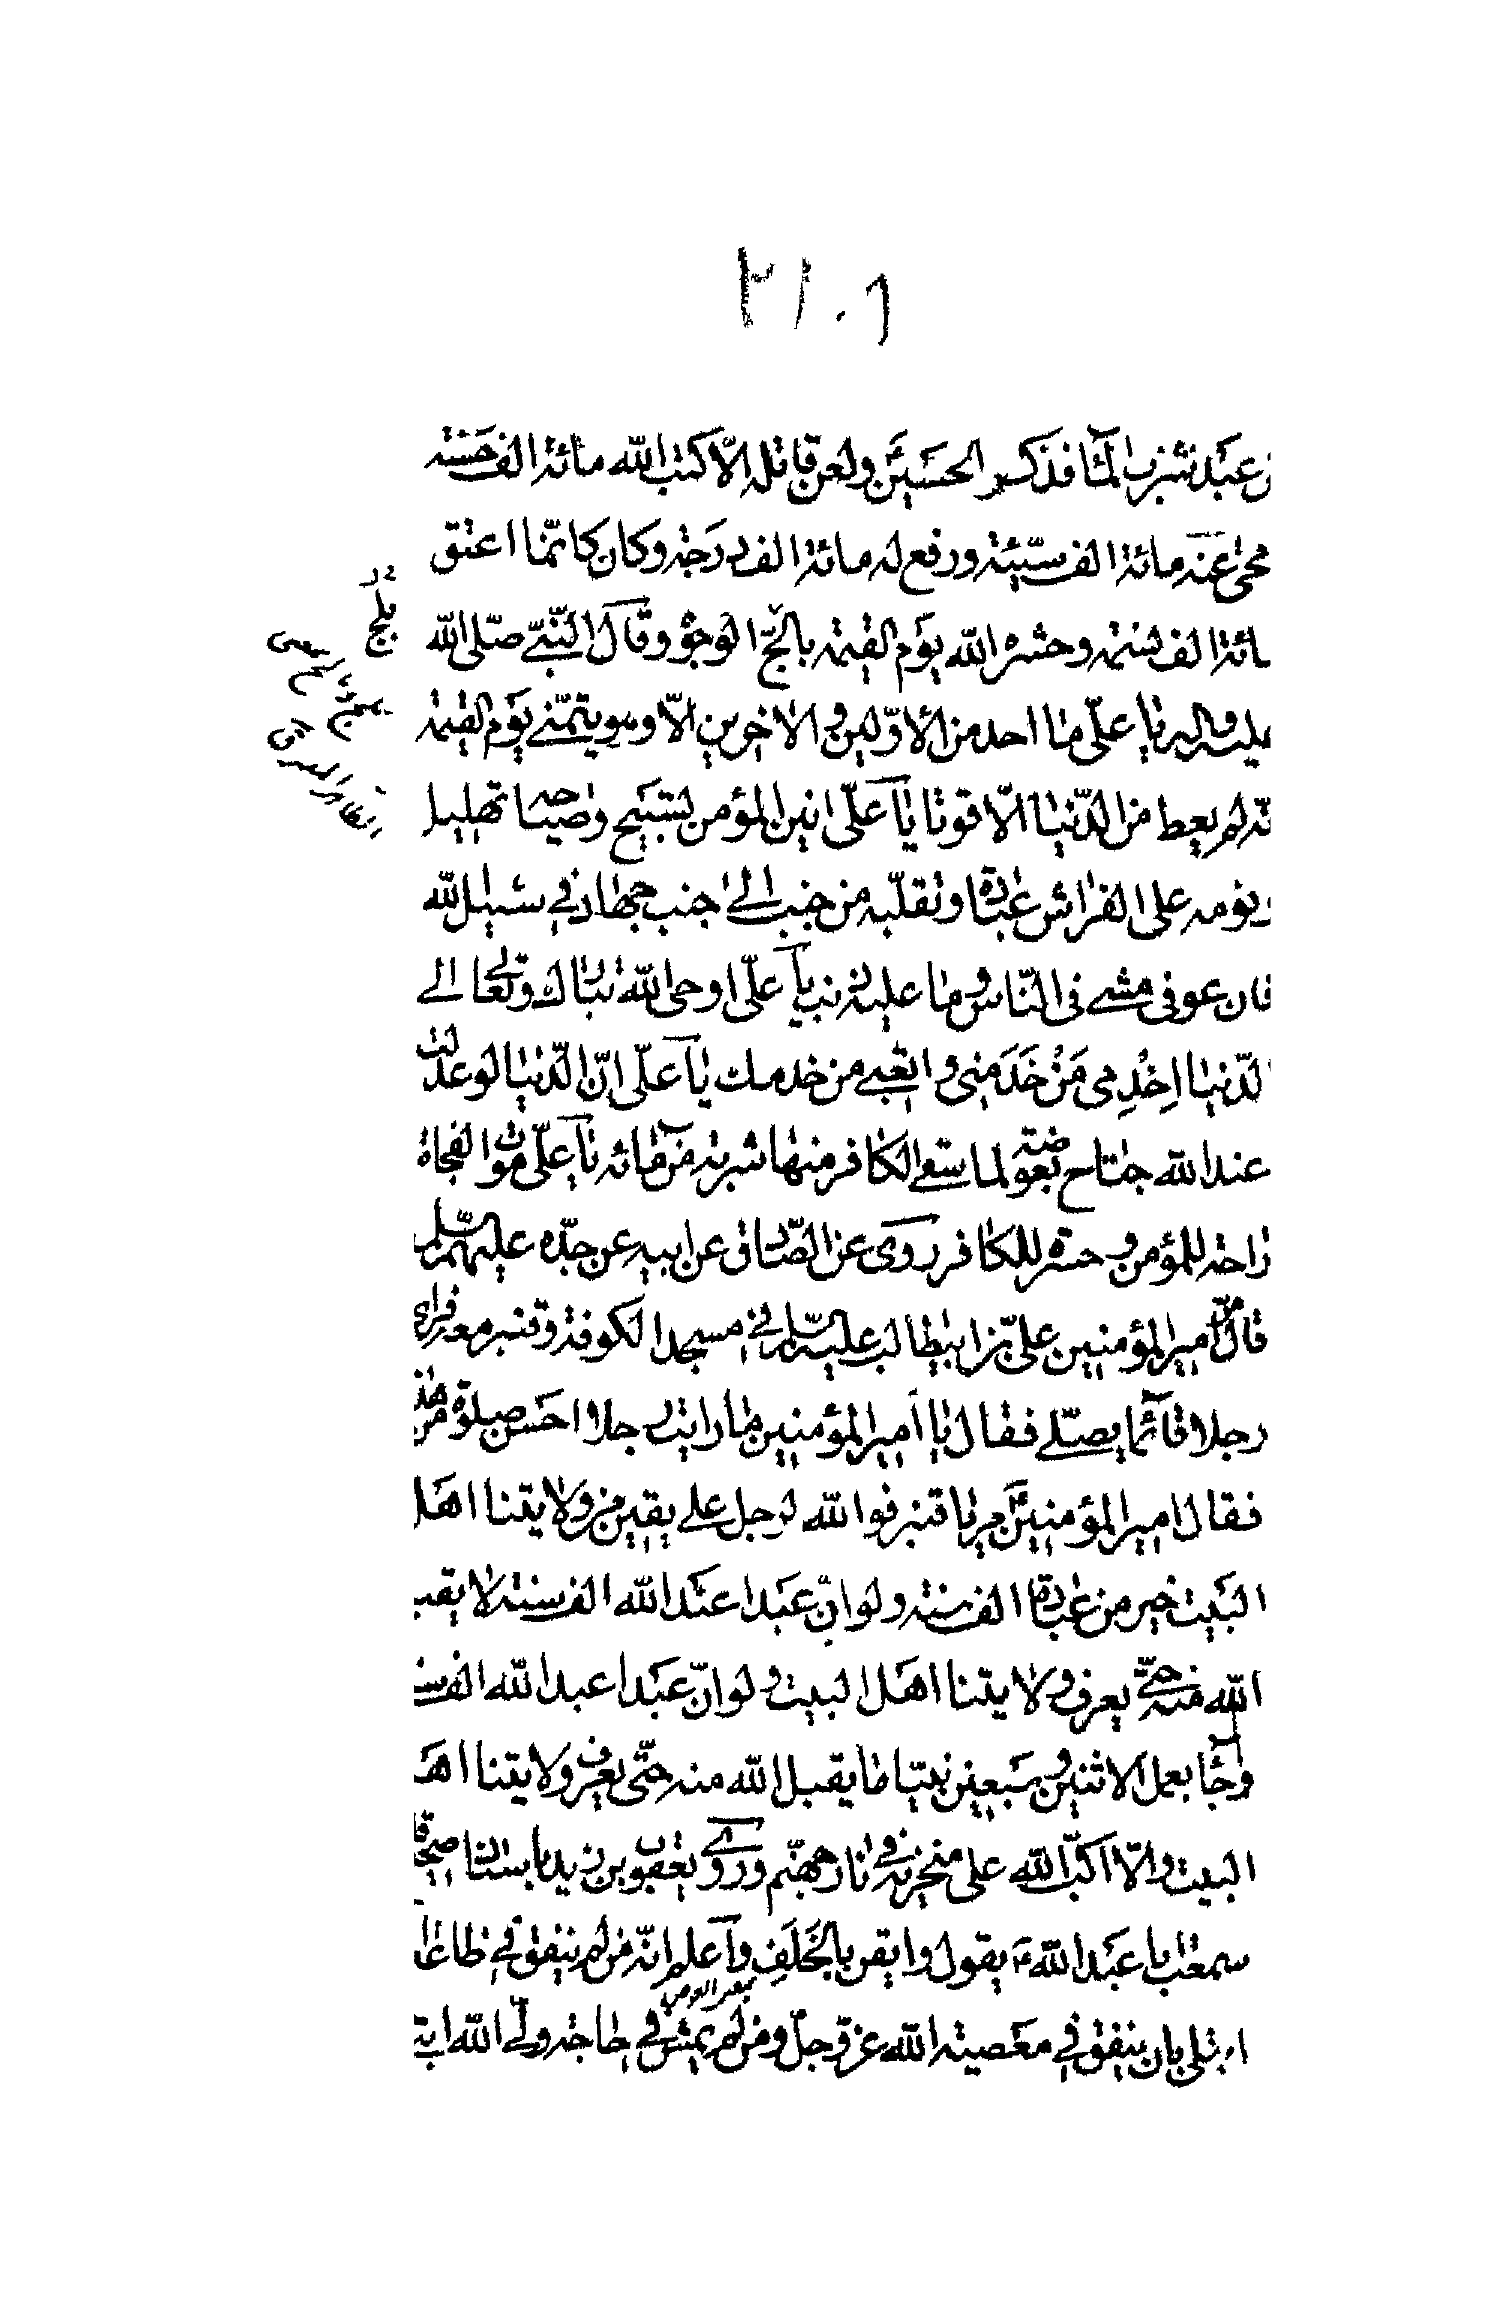 عبد شرب الماء فذكر الحسين ولعن قاتله الّا كتب الله مائة الف حسنة
محى عنه مائة الف سيّئة ورفع له مائة الف درجة وكان كانّما اعتق
مائة الف نسمة وحشره الله يوم القيمة بالج الوجه وقال النّبيّ صلّى الله
عليه واله يا علّى ما احد من الأوّلين والاخرين الّا وهو يتمنّى يوم القيمة
انّه لم يعط من الدّنيا الّا قوتا يا علّى انين المؤمن تسبيح وصياحه تهليل
ونومه على الفراش عبادة وتقلّبه من جنب الى جنب جهاد في سبيل الله
فان عوفى مشى فى النّاس وما عليه ذنب يا علّى اوحى الله تبارك وتعالى الى
الدّنيا اِخْدِمى مَنْ خَدَمنِى واتعبى من خدمك يا علّى انّ الدّنيا لو عدلت
عند الله جناح بعوضة لما سقى الكافر منها شربة من مائه يا علّى موت الفجاة
راحة للمؤمن وحسرة للكافر روى عن الصّادق عن ابيه عن جدّه عليهم السّلام
قال مرّ امير المؤمنين علّى بن ابيطالب عليه السّلام في مسجد الكوفة وقنبر معه فراى
رجلا قائما يصلّى فقال يا أمير المؤمنين ما رايت رجلا احسن صلوة من هذا
فقال امير المؤمنين مه يا قنبر فوالله لرجل على يقين من ولايتنا اهل
البيت خير من عبادة الف سنة ولو انّ عبدا عبد الله الف سنة لا يقبل
الله منه حتّى يعرف ولايتنا اهل البيت ولو انّ عبدا عبد الله الف سنة
وجاء بعمل الاثنين وسبعين نبيّا ما يقبل الله منه حتّى يعرف ولايتنا اهل
البيت والّا اكبّ الله على منخريه في نار جهنّم وروى يعقوب بن زيد باسناد صحيح قال
سمعت ابا عبد الله يقول وايقن بالخَلَفِ واعلم انّه من لم ينفق في طاعة الله
ابتلى بان ينفق في معصية الله عزّ وجلّ ومن لم يمش في حاجة ولىّ الله ابتلى